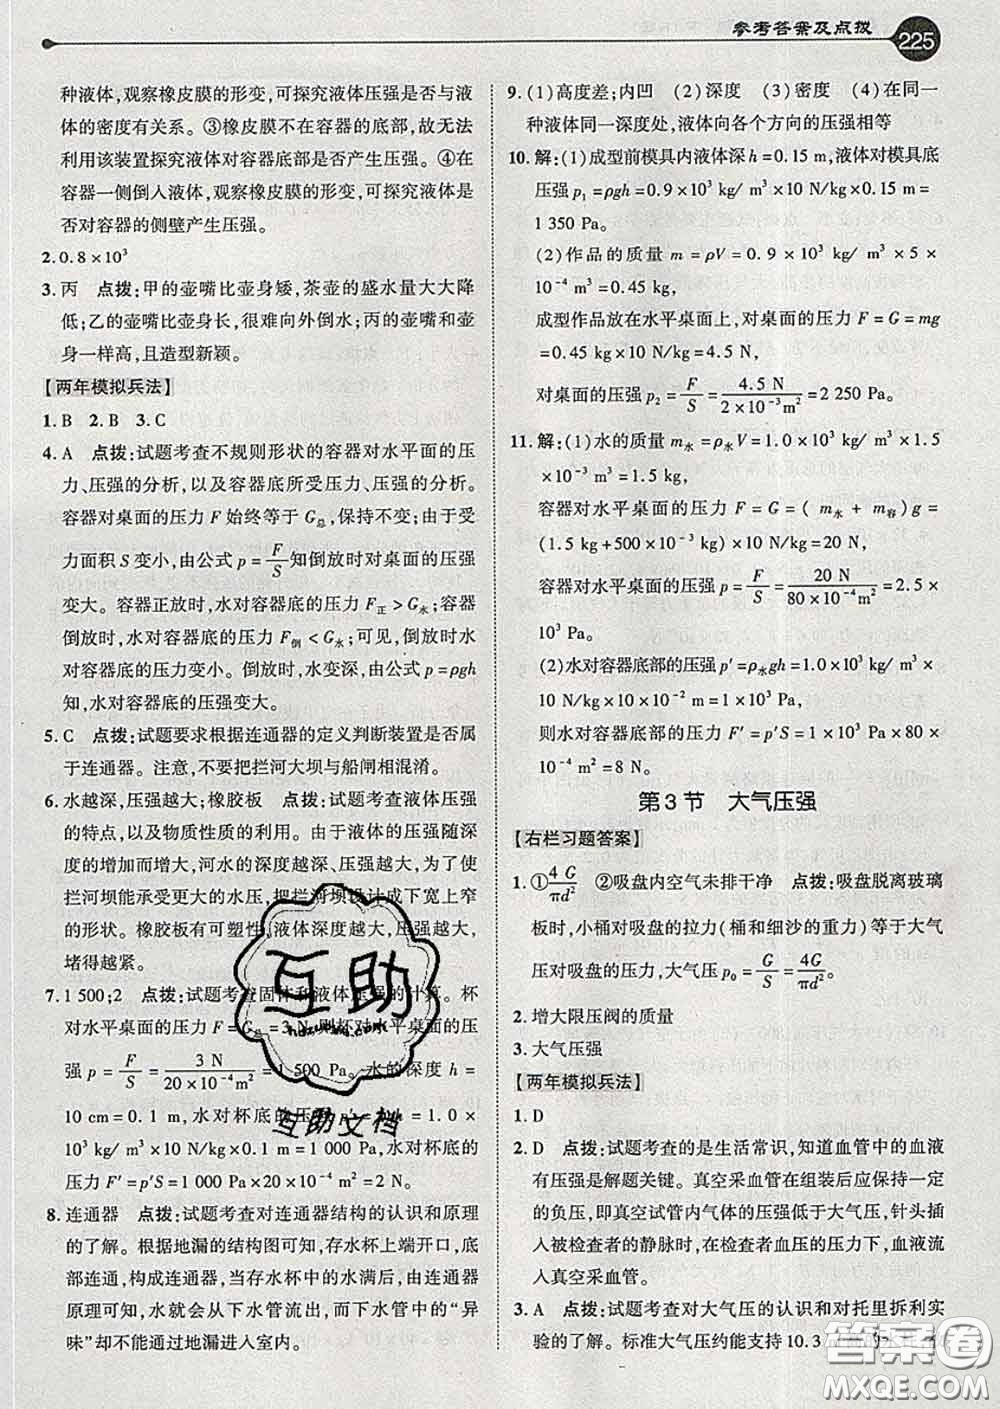 参考答案及点拨
225
种液体,观察橡皮膜的形变,可探究液体压强是否与液
体的密度有关系。③橡皮膜不在容器的底部,故无法
利用该装置探究液体对容器底部是否产生压强。④在
容器一侧倒入液体,观察橡皮膜的形变,可探究液体是
否对容器的侧壁产生压强。
2. 0.8×10³
3. 丙 点拨:甲的壶嘴比壶身矮,茶壶的盛水量大大降
低;乙的壶嘴比壶身长,很难向外倒水;丙的壶嘴和壶
身一样高,且造型新颖。
【两年模拟兵法】
1. B 2. B 3. C
4. A 点拨:试题考查不规则形状的容器对水平面的压
力、压强的分析,以及容器底所受压力、压强的分析。
容器对桌面的压力 F 始终等于 G总,保持不变;由于受
力面积 S 变小,由公式 p = F/S 知倒放时对桌面的压强
变大。容器正放时,水对容器底的压力 F正 > G水;容器
倒放时,水对容器底的压力 F倒 < G水;可见,倒放时,水
对容器底的压力变小。倒放时,水变深,由公式 p = ρgh
知,水对容器底的压强变大。
5. C 点拨:试题要求根据连通器的定义判断装置是否属
于连通器。注意,不要把拦河大坝与船闸相混淆。
6. 水越深,压强越大;橡胶板 点拨:试题考查液体压强
的特点,以及物质性质的利用。由于液体的压强随深
度的增加而增大,河水的深度越深、压强越大,为了使
拦河坝能承受更大的水压,把拦河坝设计成下宽上窄
的形状。橡胶板有可塑性,液体深度越大,压强越大,
堵得越紧。
7. 1 500;2 点拨:试题考查固体和液体压强的计算。杯
对水平桌面的压力 F = G总 = 3 N,则杯对水平桌面的压
强 p = F/S = 3 N/(20×10⁻⁴ m²) = 1 500 Pa。水的深度 h =
10 cm = 0.1 m,水对杯底的压强 p′ = ρgh = 1.0 ×
10³ kg/m³ × 10 N/kg × 0.1 m = 1 000 Pa,水对杯底的
压力 F′ = p′S = 1 000 Pa×20×10⁻⁴ m² = 2 N。
8. 连通器 点拨:试题考查对连通器结构的认识和原理
的了解。根据地漏的结构图可知,存水杯上端开口,底
部连通,构成连通器,当存水杯中的水满后,由连通器
原理可知,水就会从下水管流出,而下水管中的“异
味”却不能通过地漏进入室内。
9. (1)高度差;内凹 (2)深度 (3)密度 (4)在同一
种液体同一深度处,液体向各个方向的压强相等
10. 解:(1)成型前模具内液体深 h = 0.15 m,液体对模具底
压强 p₁ = ρgh = 0.9×10³ kg/ m³×10 N/kg×0.15 m =
1 350 Pa。
(2)作品的质量 m = ρV = 0.9 × 10³ kg/ m³ × 5 ×
10⁻⁴ m³ = 0.45 kg,
成型作品放在水平桌面上,对桌面的压力 F = G = mg
= 0.45 kg×10 N/kg = 4.5 N,
对桌面的压强 p₂ = F/S = 4.5 N/(2×10⁻³ m²) = 2 250 Pa。
11. 解:(1)水的质量 m水 = ρ水V = 1.0×10³ kg/ m³×1.5
×10⁻³ m³ = 1.5 kg,
容器对水平桌面的压力 F = G = ( m水 + m容)g =
(1.5 kg+500×10⁻³ kg)×10 N/kg = 20 N,
容器对水平桌面的压强 p = F/S = 20 N/(80×10⁻⁴ m²) = 2.5 ×
10³ Pa。
(2)水对容器底部的压强 p′ = ρ水gh = 1.0×10³ kg/ m³
×10 N/kg×10×10⁻² m = 1×10³ Pa,
则水对容器底部的压力 F′ = p′S = 1×10³ Pa × 80 ×
10⁻⁴ m² = 8 N。
第 3 节 大气压强
【右栏习题答案】
1. ①4G/πd² ②吸盘内空气未排干净 点拨:吸盘脱离玻璃
板时,小桶对吸盘的拉力(桶和细沙的重力)等于大气
压对吸盘的压力,大气压 p₀ = G/S = 4G/πd²。
2. 增大限压阀的质量
3. 大气压强
【两年模拟兵法】
1. D
2. D 点拨:试题考查的是生活常识,知道血管中的血液
有压强是解题关键。真空采血管在组装后应有一定的
负压,即真空试管内气体的压强低于大气压,针头插入
被检查者的静脉时,在被检查者血压的压力下,血液流入
真空采血管。
3. A 点拨:试题考查对大气压的认识和对托里拆利实
验的了解。标准大气压约能支持 10.3
互助
hdzuowen.com
互助文档
答案圈
MXQE.COM